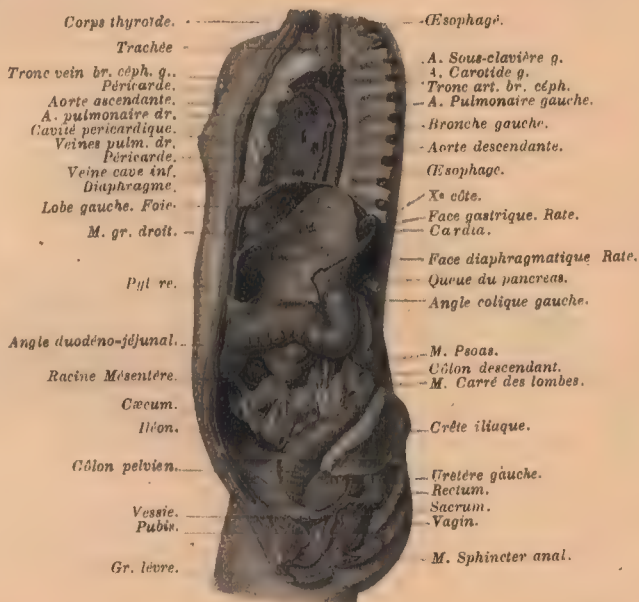 Corps thyroïde.
Trachée
Tronc vein br. céph. g..
Péricarde.
Aorte ascendante.
A. pulmonaire dr.
Cavité pericardique.
Veines pulm. dr.
Péricarde.
Veine cave inf.
Diaphragme.
Lobe gauche. Foie.
M. gr. droit.
Pyl re.
Angle duodéno-jéjunal.
Racine Mésentère.
Cæcum.
Iléon.
Côlon pelvien.
Vessie.
Pubis.
Gr. lèvre.
Œsophage.
A. Sous-clavière g.
A. Carotide g.
Tronc art. br. céph.
A. Pulmonaire gauche.
Bronche gauche.
Aorte descendante.
Œsophage.
Xe côte.
Face gastrique. Rate.
Cardia.
Face diaphragmatique Rate.
Queue du pancreas.
Angle colique gauche.
M. Psoas.
Côlon descendant.
M. Carré des lombes.
Crête iliaque.
Uretère gauche.
Rectum.
Sacrum.
Vagin.
M. Sphincter anal.